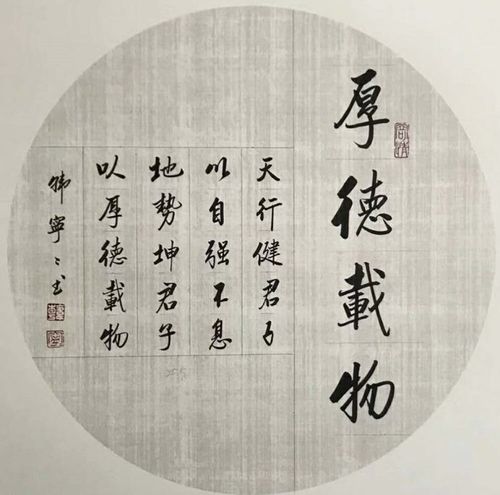 厚德載物
天行健君子
以自强不息
地势坤君子
以厚德載物
韩寧寧书